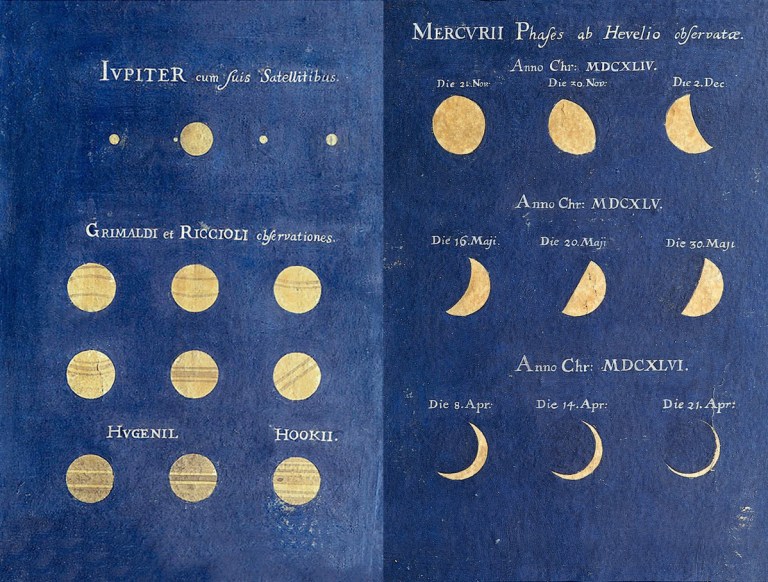 IVPITER cum ſuis Satellitibus.
GRIMALDI et RICCIOLI obſervationes.
HVGENII.
HOOKII.
MERCVRII Phaſes ab Hevelio obſervatæ.
Anno Chr: MDCXLIV.
Die 21. Nov:
Die 30. Nov:
Die 2. Dec
Anno Chr: MDCXLV.
Die 16. Maji.
Die 20. Maji
Die 30. Maji
Anno Chr: MDCXLVI.
Die 8. Apr:
Die 14. Apr:
Die 21. Apr: